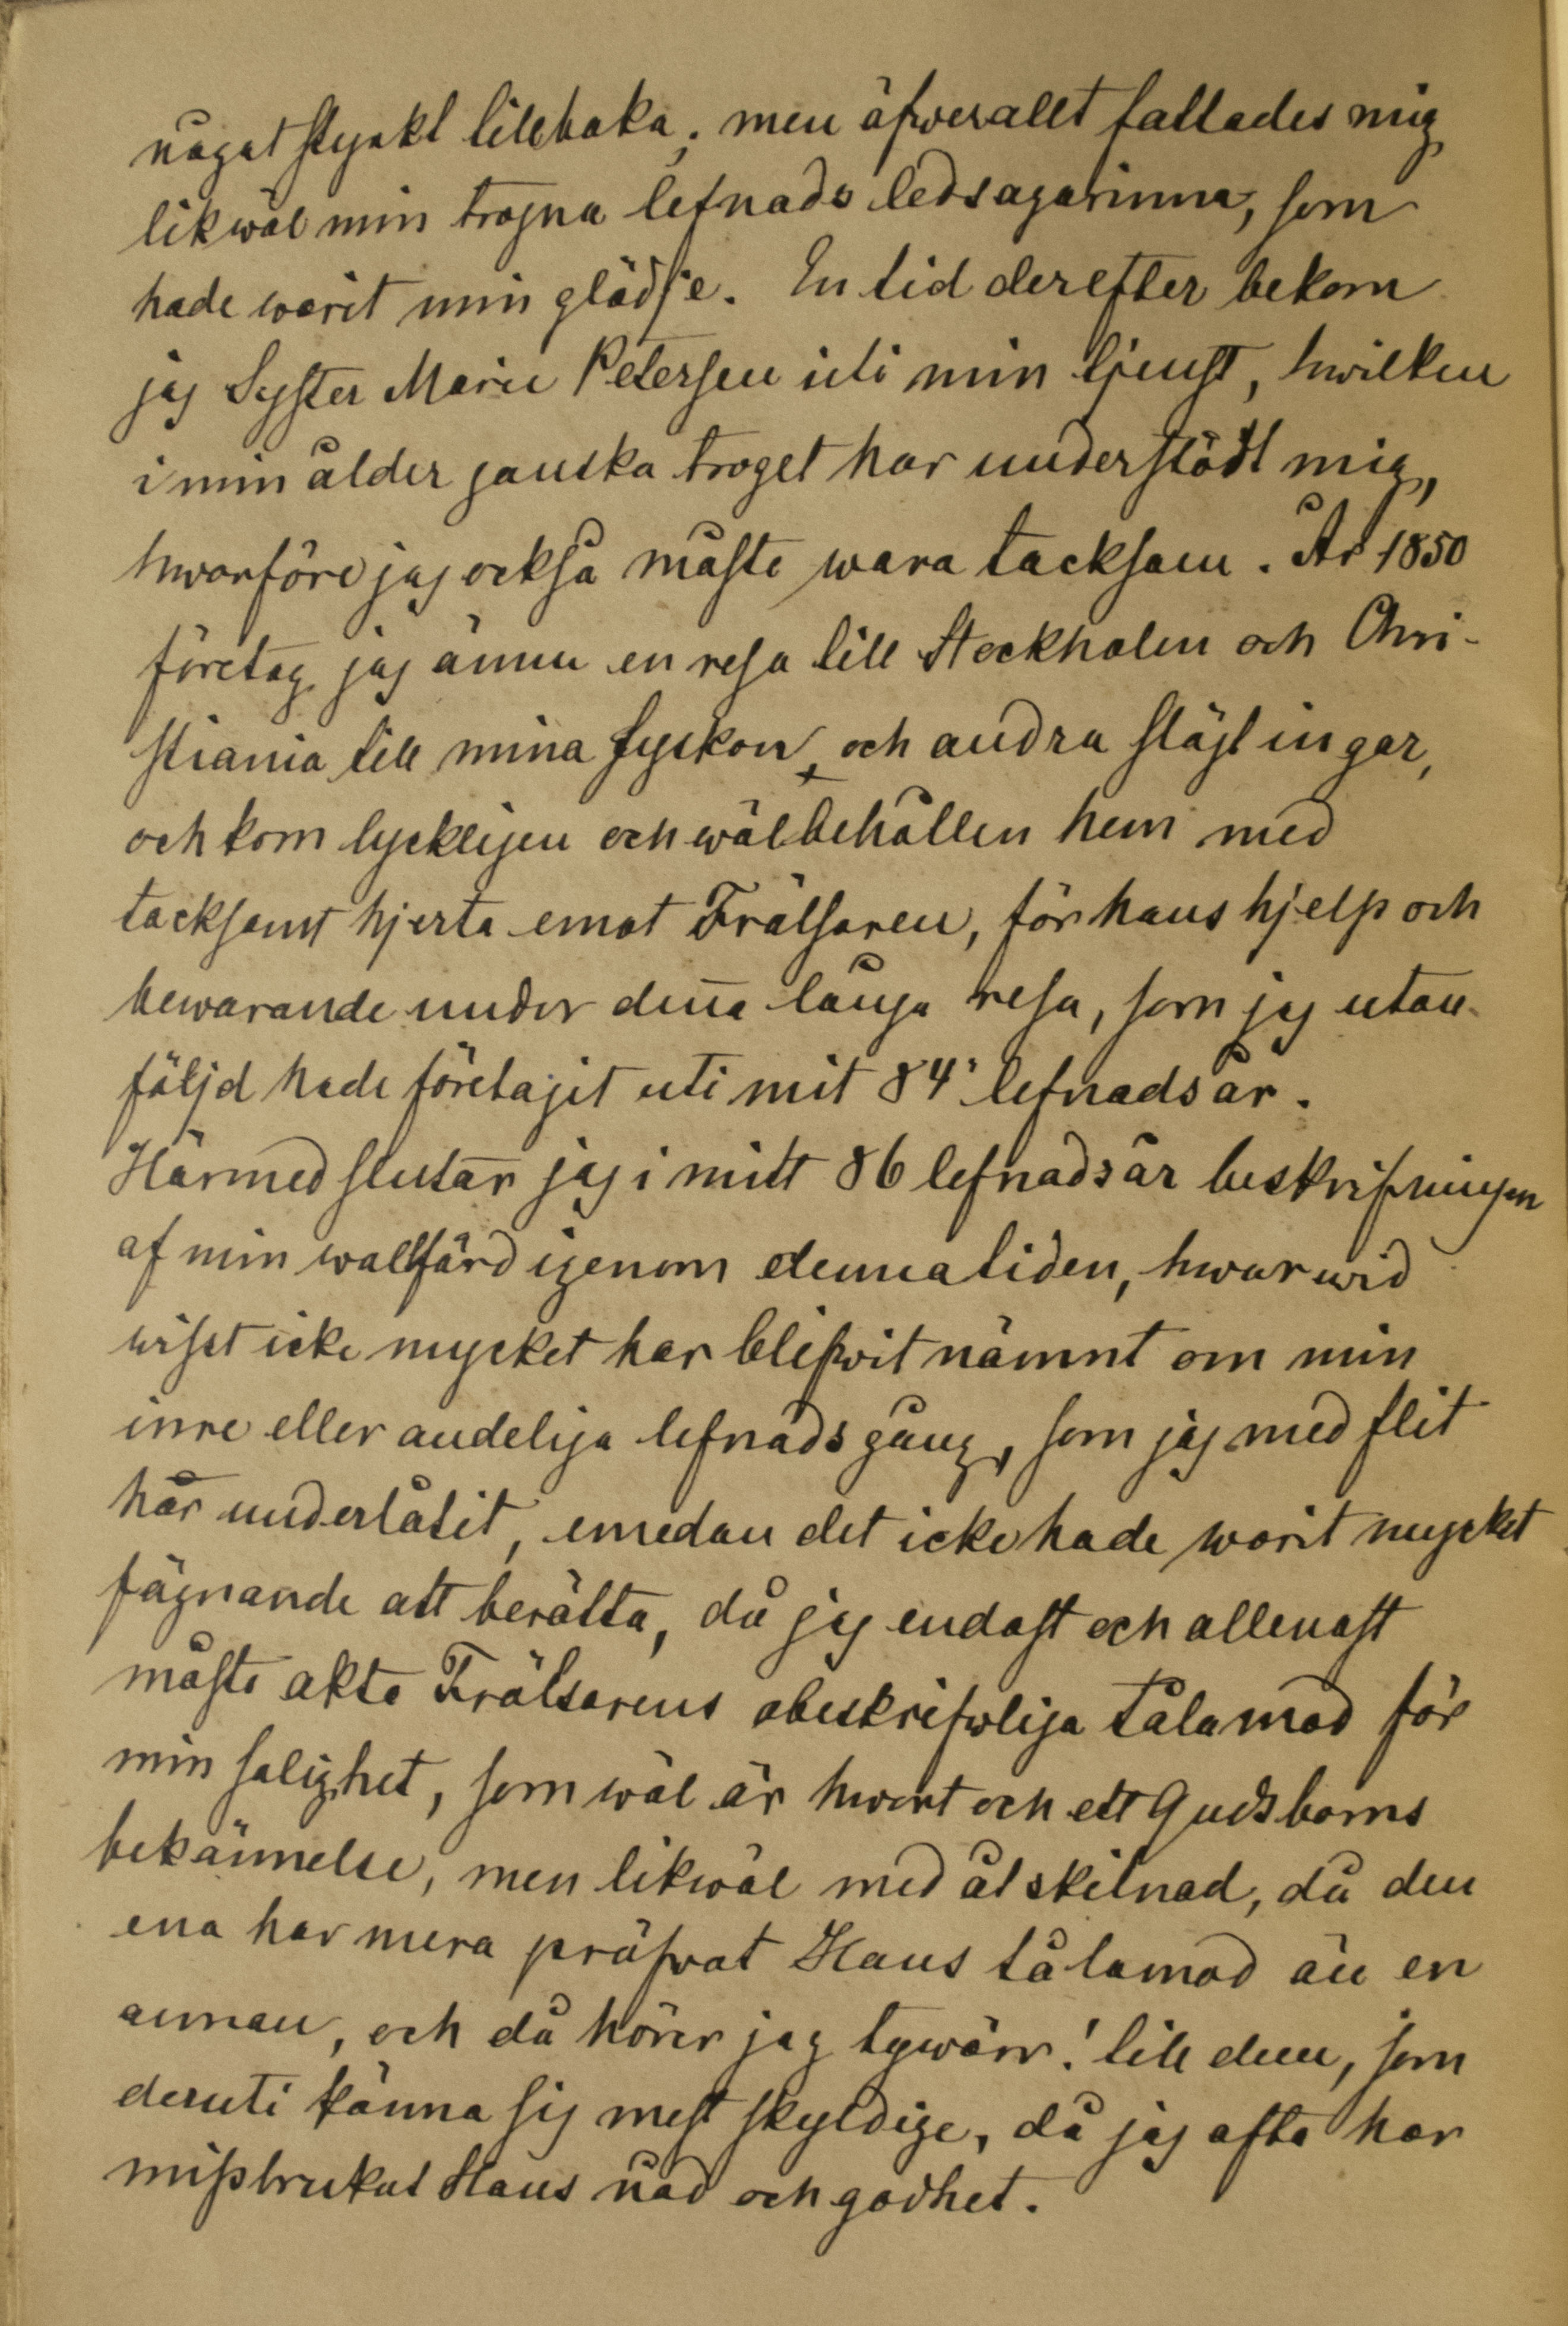 något styrkt tillbaka; men öfwerallt fattades mig
likwäl min trogna lefnads ledsagarinna, som
hade warit min glädje. En tid derefter bekom
jag Syster Marie Petersen uti min tjenst, hwilken
i min ålder ganska troget har understödt mig,
hwarföre jag också måste wara tacksam. År 1850
företog jag ännu en resa till Stockholm och Chri-
stiania till mina Syskon, och andra slägtingar,
och kom lyckligen och wälbehållen hem med
tacksamt hjerta emot Frälsaren, för hans hjelp och
bewarande under den̄a långa resa, som jag utan
följd hade företagit uti mit 84' lefnadsår.
Härmed slutar jag i mitt 86 lefnadsår beskrifningen
af min wallfärd igenom denna tiden, hwarwid
wisst icke mycket har blifwit nämnt om min
inre eller andeliga lefnads gång, som jag med flit
här underlåtit, emedan det icke hade warit mycket
fägnande att berätta, då jag endast och allenast
måste akta Frälsarens obeskrifwliga tålamod för
min salighet, som wäl är hwart och ett Gudsbarns
bekännelse, men likwäl med åtskilnad, då den
ena har mera pröfwat Hans tålamod än en
annan, och då hörer jag tywärr! till dem, som
deruti känna sig mest skyldige, då jag ofta har
missbrukat Hans nåd och godhet.